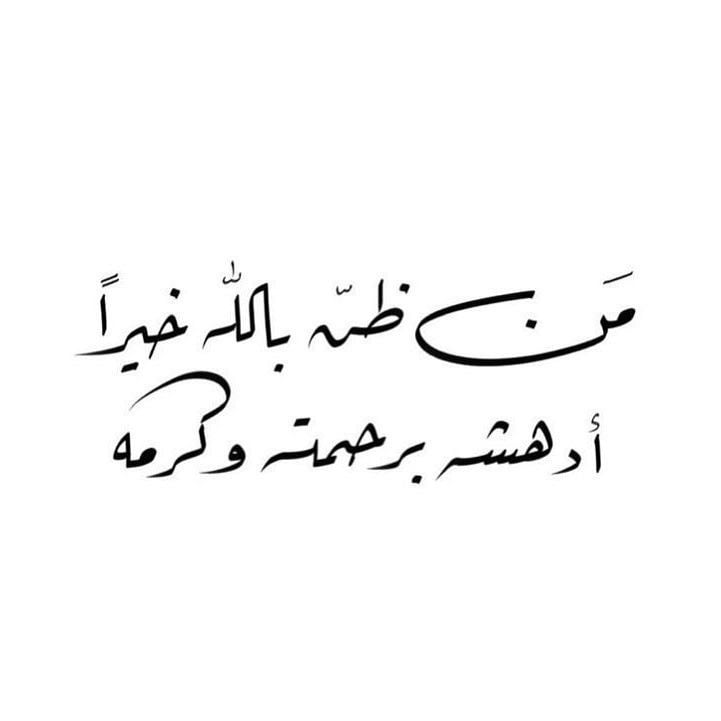 مَن ظنّ بالله خيراً
أدهشه برحمته وكرمه